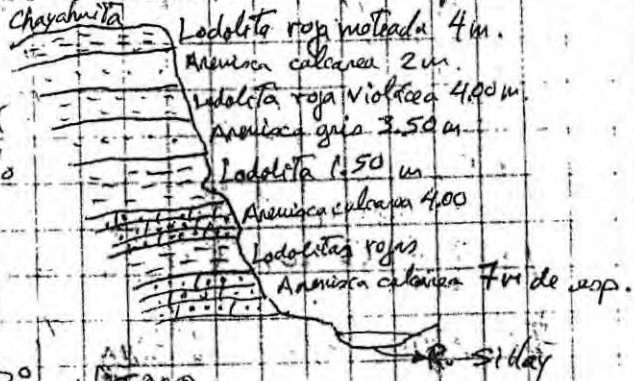 Chayahuita
Lodolita roja moteada 4 m.
Arenisca calcarea 2 m.
Lodolita roja violácea 4.00 m
Arenisca gris 3.50 m
Lodolita 1.50 m
Arenisca calcarea 4.00
Lodolitas rojas
Arenisca calcarea 7 m de esp.
Sillay